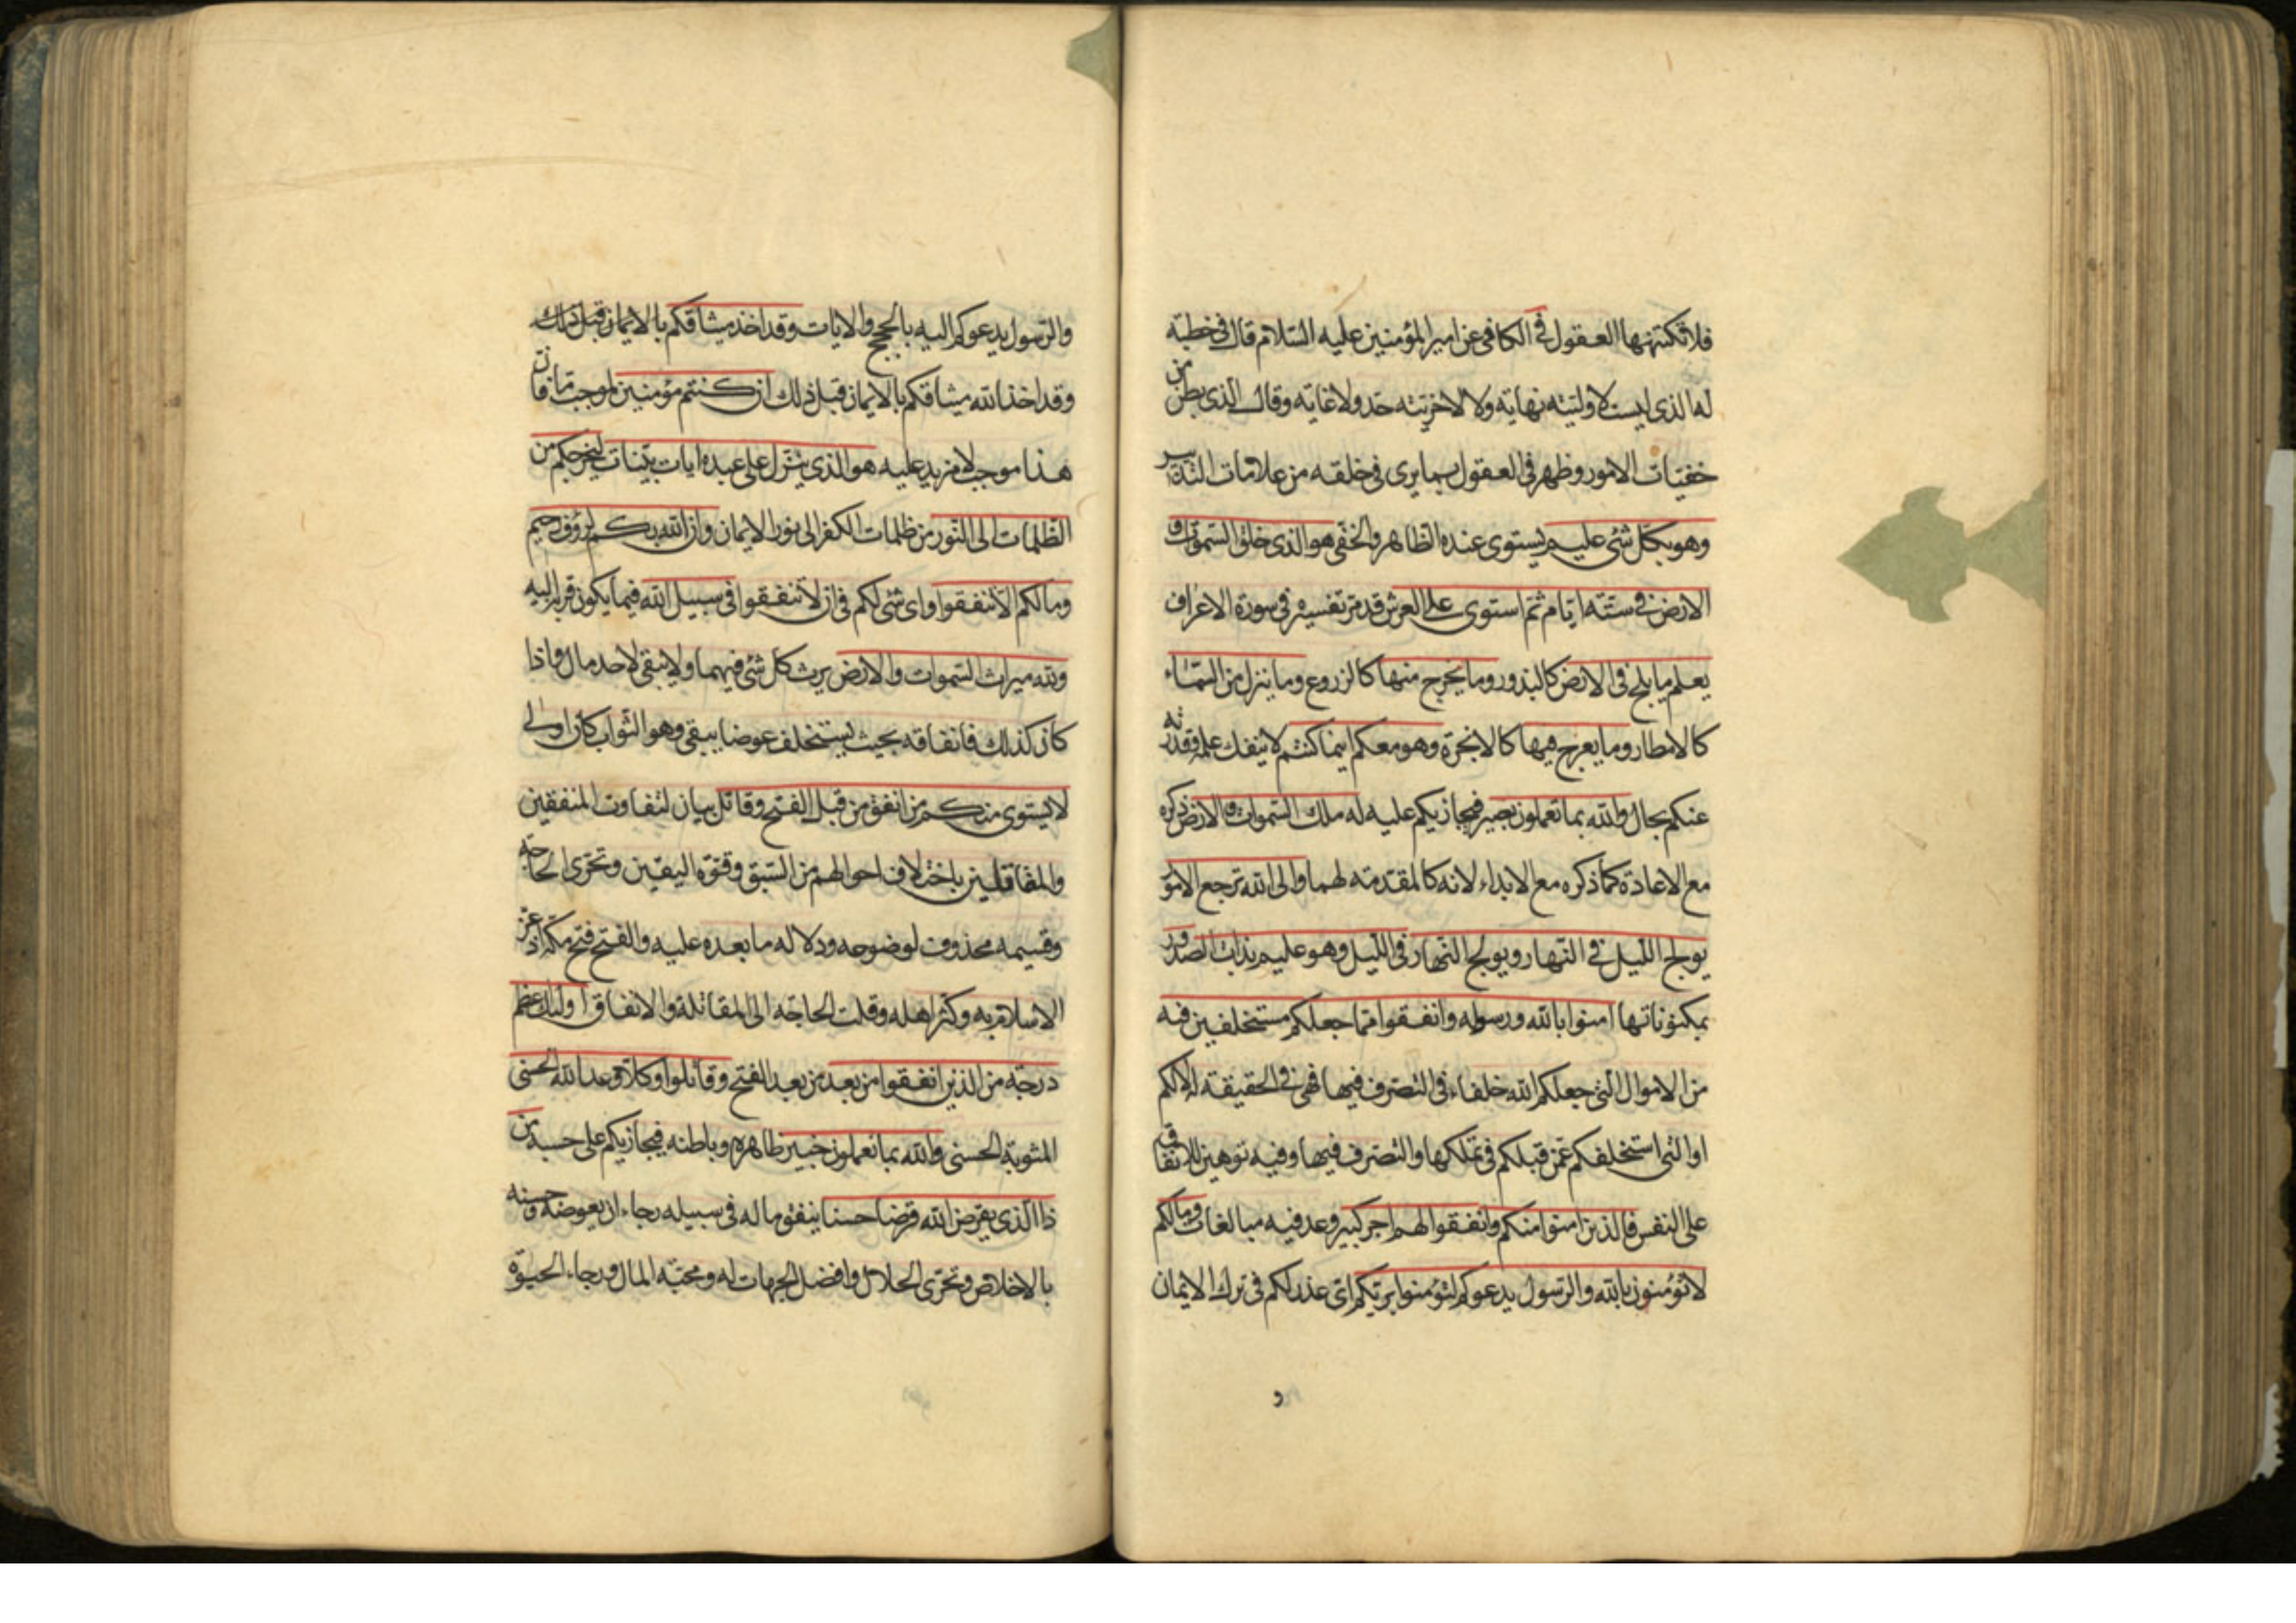 فلا تكتنهها العقول في الكافي عن امير المؤمنين عليه السلام قال في خطبته
له الذي ليست لاوليته نهاية ولا لاخريته حد ولا غاية وقال الذي بطن من
خفيات الامور وظهر في العقول بما يرى في خلقه من علامات التدبير
وهو بكل شئ عليم يستوي عنده الظاهر والخفي هو الذي خلق السموات و
الارض في ستة ايام ثم استوى على العرش قد مر تفسيره في سورة الاعراف
يعلم ما يلج في الارض كالبذور وما يخرج منها كالزروع وما ينزل من السماء
كالامطار وما يعرج فيها كالابخرة وهو معكم اينما كنتم لا ينفك علمه وقدرته
عنكم بحال والله بما تعملون بصير فيجازيكم عليه له ملك السموات والارض ذكره
مع الاعادة كما ذكره مع الابداء لانه كالمقدمة لهما والى الله ترجع الامور
يولج الليل في النهار ويولج النهار في الليل وهو عليم بذات الصدور
بمكنوناتها امنوا بالله ورسوله وانفقوا مما جعلكم مستخلفين فيه
من الاموال التي جعلكم الله خلفاء في التصرف فيها فهي في الحقيقة له لا لكم
او التي استخلفكم عمن قبلكم في تملكها والتصرف فيها وفيه توهين للانفاق
على النفس فالذين امنوا منكم وانفقوا لهم اجر كبير وعد فيه مبالغات وما لكم
لا تؤمنون بالله والرسول يدعوكم لتؤمنوا بربكم اي عذر لكم في ترك الايمان
و
والرسول يدعوكم اليه بالحجج والايات وقد اخذ ميثاقكم بالايمان قبل ذلك
وقد اخذ الله ميثاقكم بالايمان قبل ذلك ان كنتم مؤمنين لموجب ما فان
هذا موجب لا مزيد عليه هو الذي ينزل على عبده ايات بينات ليخرجكم من
الظلمات الى النور من ظلمات الكفر الى نور الايمان وان الله بكم لرؤف رحيم
وما لكم الا تنفقوا واي شئ لكم في ان لا تنفقوا في سبيل الله فيما يكون قربة اليه
ولله ميراث السموات والارض يرث كل شئ فيهما ولا يبقى لاحد مال واذا
كان كذلك فانفاقه بحيث يستخلف عوضا يبقى وهو الثواب كان اولى
لا يستوي منكم من انفق من قبل الفتح وقاتل بيان لتفاوت المنفقين
والمقاتلين باختلاف احوالهم من السبق وقوة اليقين وتحري الحاجة
وقسيمه محذوف لوضوحه ودلالة ما بعده عليه والفتح فتح مكة اذ عز
الاسلام به وكثر اهله وقلت الحاجة الى المقاتلة والانفاق اولئك اعظم
درجة من الذين انفقوا من بعد من بعد الفتح وقاتلوا وكلا وعد الله الحسنى
المثوبة الحسنى والله بما تعملون خبير ظاهره وباطنه فيجازيكم على حسبه من
ذا الذي يقرض الله قرضا حسنا ينفق ماله في سبيله رجاء ان يعوضه وحسنه
بالاخلاص وتحري الحلال وافضل الجهات له ومحبة المال ورجاء الحيوة